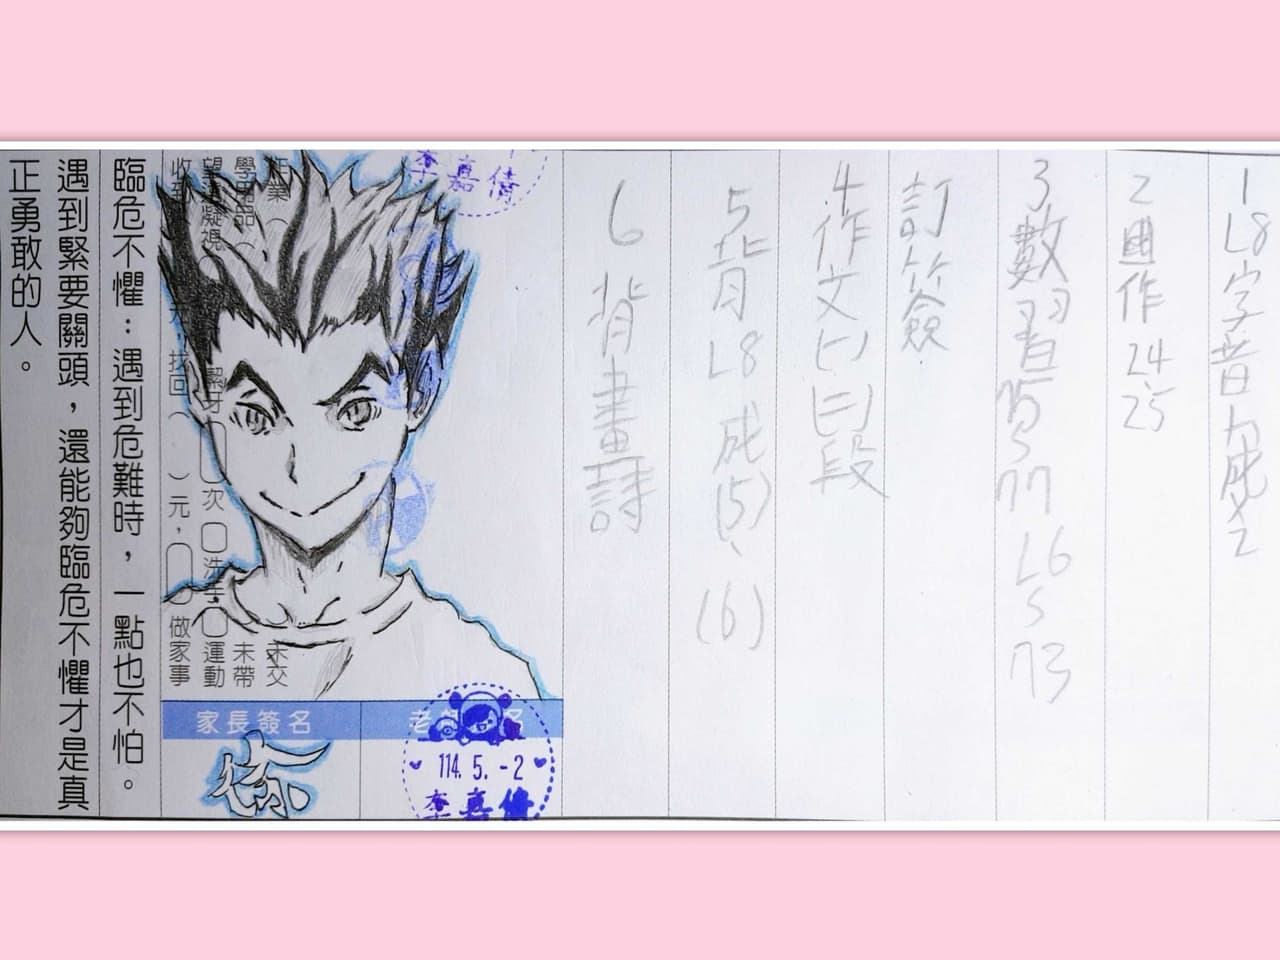 1 L8字音
2 甲作24、25
3 數習 77 L6 73
訂簽
4作文(一)(二)段
5背L8成(5)、(6)
6背畫詩
李嘉倩
未交
學用品(
未帶
望遠凝視
潔牙
次
洗手
運動
收到
元,找回( )元,
做家事
家長簽名
114. 5. -2
李嘉倩
臨危不懼:遇到危難時,一點也不怕。
遇到緊要關頭,還能夠臨危不懼才是真
正勇敢的人。